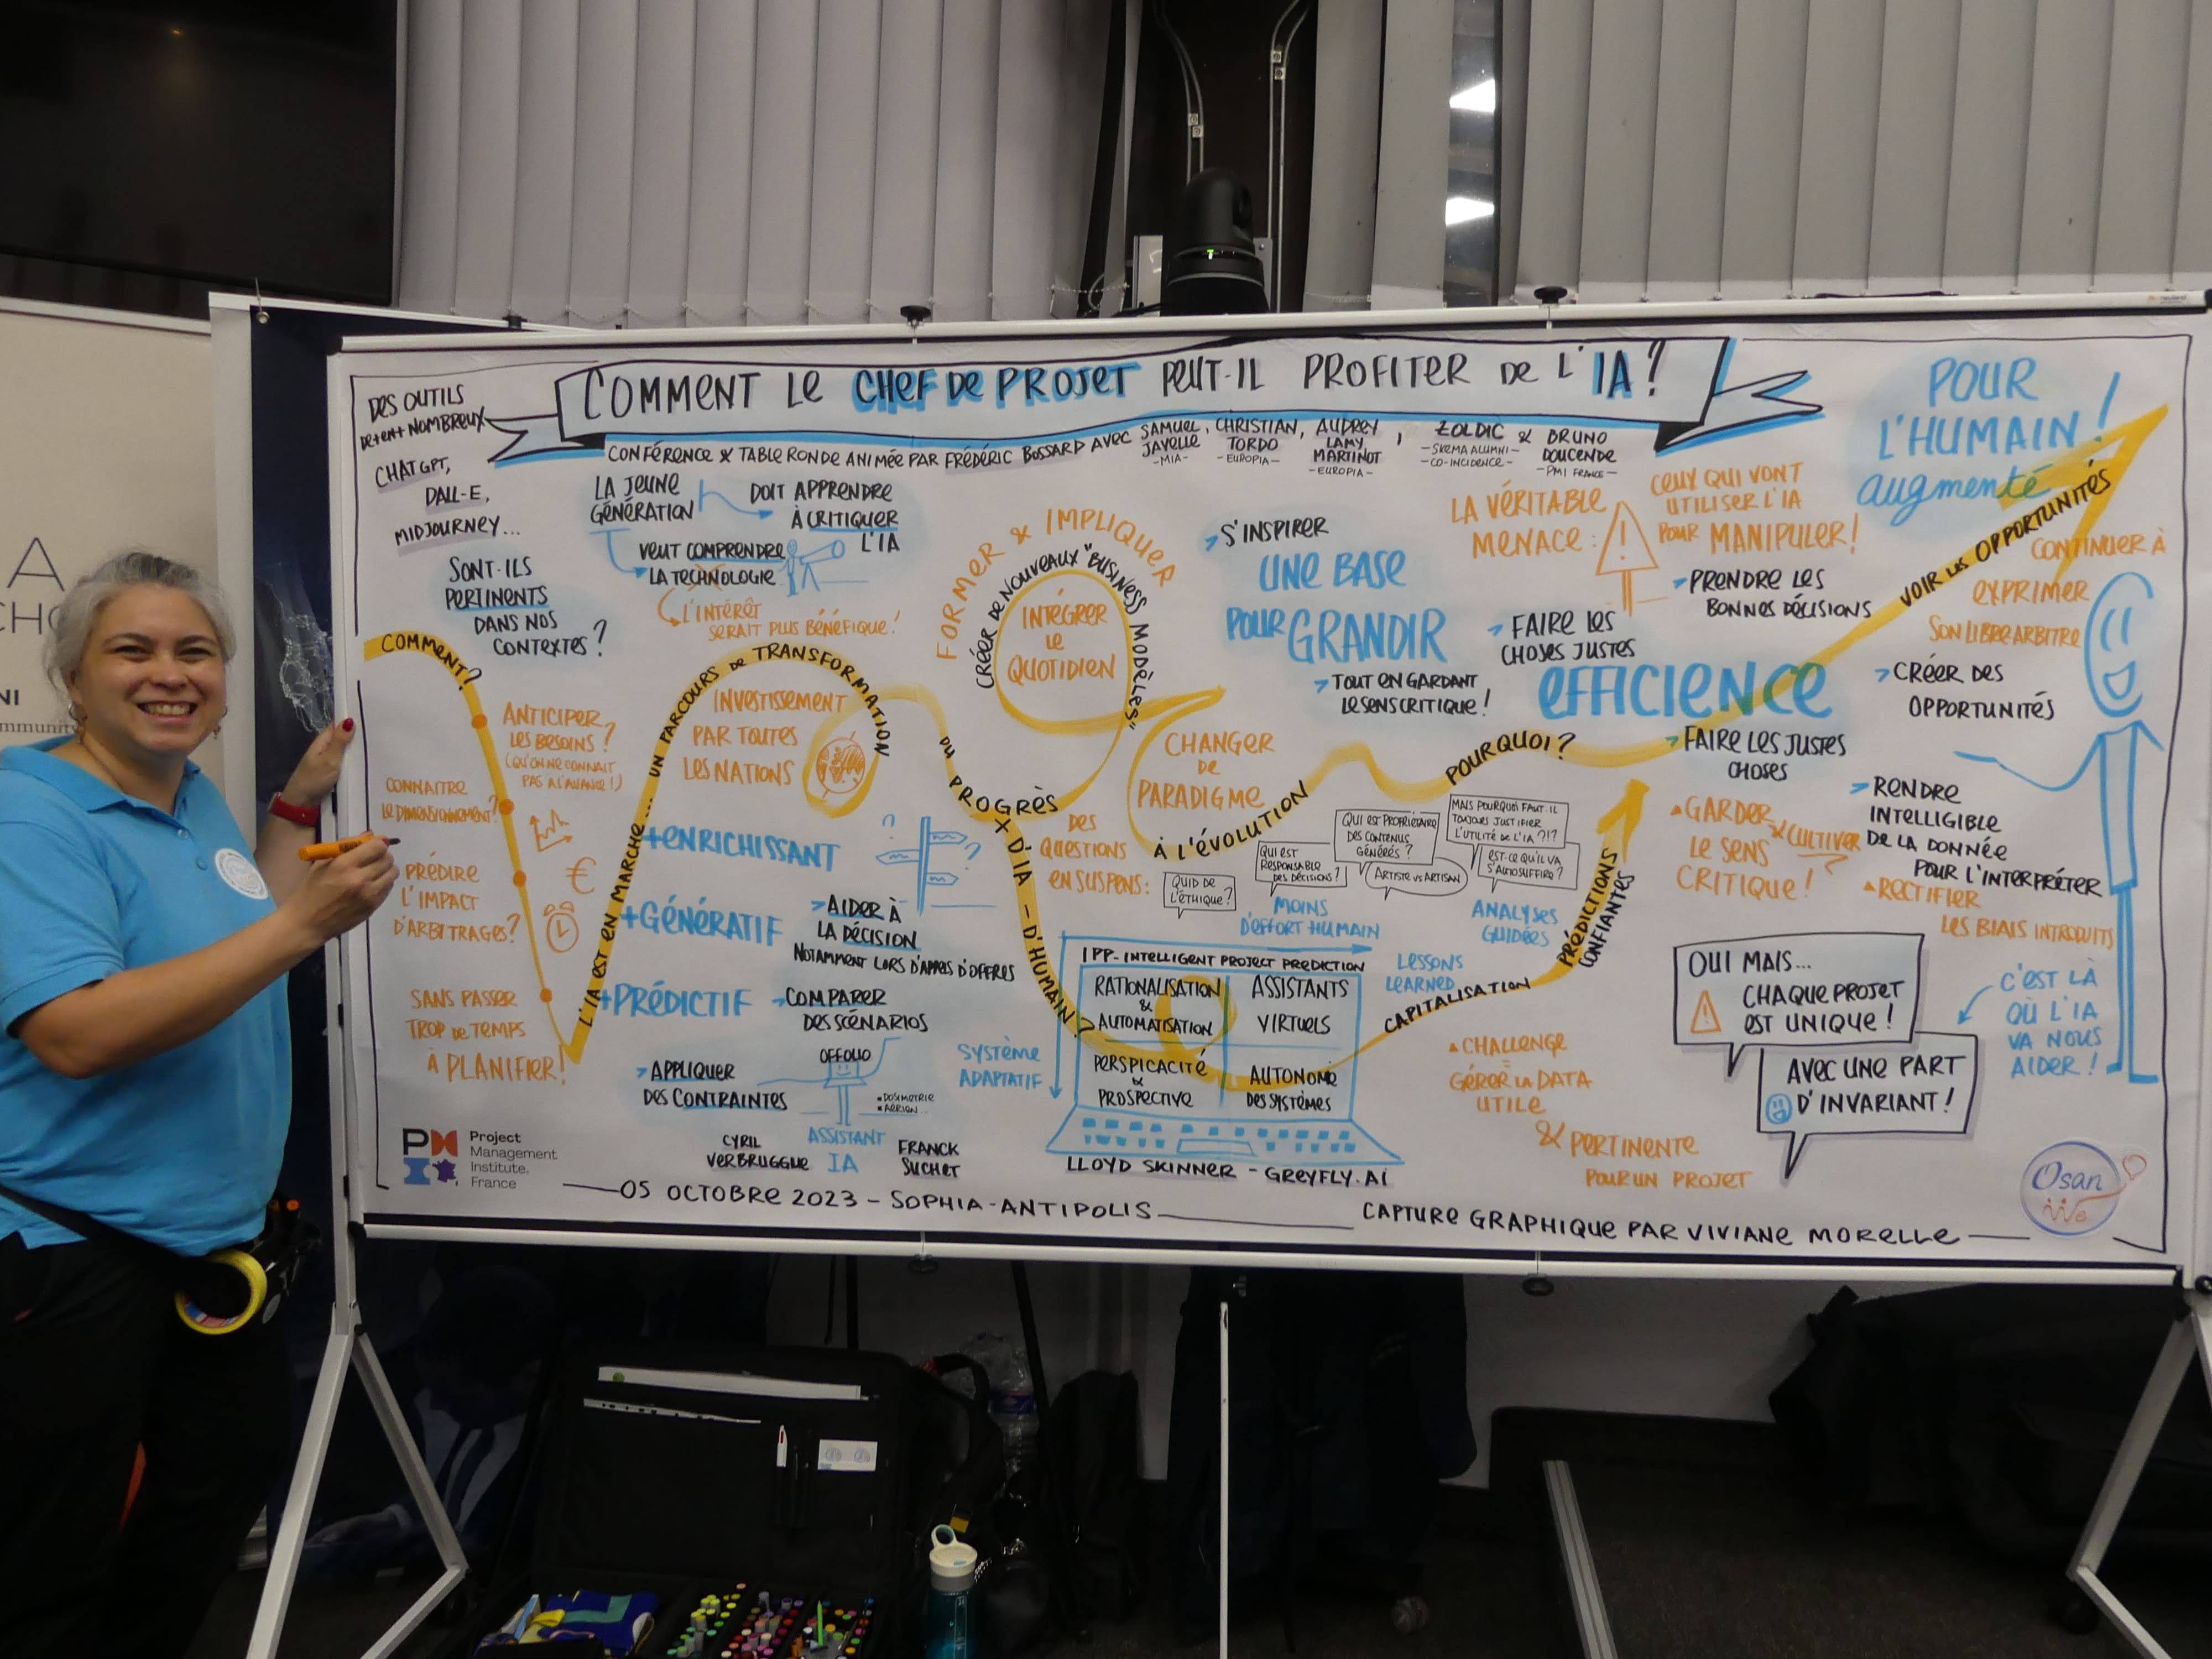 COMMENT LE CHEF DE PROJET PEUT-IL PROFITER DE L'IA?
CONFÉRENCE & TABLE RONDE ANIMÉE PAR FRÉDÉRIC BOSSARD AVEC
SAMUEL JAVELLE
-MIA-
, CHRISTIAN,
TORDO
-EUROPIA-
AUDREY
LAMY
MARTINOT
-EUROPIA-
,
ZOLDIC
-SKEMA ALUMNI-
-CO-INCIDENCE-
& BRUNO
DOUCENDE
-PMI FRANCE-
DES OUTILS
NOMBREUX
CHATGPT,
DALL-E,
MIDJOURNEY...
SONT-ILS
PERTINENTS
DANS NOS
CONTEXTES?
COMMENT?
ANTICIPER
LES BESOINS?
(QU'ON NE CONNAIT
PAS A L'AVANCE!)
CONNAITRE
LE DIMENSIONNEMENT?
PRÉDIRE
L'IMPACT
D'ARBITRAGES?
€
SANS PASSER
TROP DE TEMPS
À PLANIFIER!
L'IA EST EN MARCHE... UN PARCOURS DE TRANSFORMATION
LA JEUNE
GÉNÉRATION
DOIT APPRENDRE
À CRITIQUER
L'IA
VEUT COMPRENDRE
LA TECHNOLOGIE
L'INTÉRÊT
SERAIT PLUS BÉNÉFIQUE!
INVESTISSEMENT
PAR TOUTES
LES NATIONS
+ENRICHISSANT
+GÉNÉRATIF
+PRÉDICTIF
?
?
AIDER À
LA DÉCISION
NOTAMMENT LORS D'APPELS D'OFFRES
COMPARER
DES SCÉNARIOS
APPLIQUER
DES CONTRAINTES
OFFOLIO
DOSIMETRIE
AÉRIEN...
ASSISTANT
IA
CYRIL
VERBRUGGHE
FRANCK
SUCHET
DU PROGRÈS
+ D'IA - D'HUMAIN?
FORMER & IMPLIQUER
CRÉER DE NOUVEAUX "BUSINESS MODÈLES"
INTÉGRER
LE
QUOTIDIEN
CHANGER
DE
PARADIGME
À L'ÉVOLUTION
DES
QUESTIONS
EN SUSPENS:
QUID DE
L'ÉTHIQUE?
QUI EST
RESPONSABLE
DES DÉCISIONS?
QUI EST PROPRIÉTAIRE
DES CONTENUS
GÉNÉRÉS?
ARTISTE VS ARTISAN
MAIS POURQUOI FAUT-IL
TOUJOURS JUSTIFIER
L'UTILITÉ DE L'IA ?!?
EST-CE QU'IL VA
S'AUTOSUFFIRE?
MOINS
D'EFFORT HUMAIN
ANALYSES
GUIDÉES
IPP - INTELLIGENT PROJECT PREDICTION
RATIONALISATION
&
AUTOMATISATION
ASSISTANTS
VIRTUELS
PERSPICACITÉ
&
PROSPECTIVE
AUTONOMIE
DES SYSTÈMES
SYSTÈME
ADAPTATIF
LLOYD SKINNER - GREYFLY.AI
LESSONS
LEARNED
CAPITALISATION
PRÉDICTIONS
CONFIANTES
CHALLENGE
=
GÉRER LA DATA
UTILE
& PERTINENTE
POUR UN PROJET
S'INSPIRER
UNE BASE
POUR GRANDIR
TOUT EN GARDANT
LE SENS CRITIQUE!
POURQUOI?
LA VÉRITABLE
MENACE:
CEUX QUI VONT
UTILISER L'IA
POUR MANIPULER!
PRENDRE LES
BONNES DÉCISIONS
FAIRE LES
CHOSES JUSTES
EFFICIENCE
FAIRE LES JUSTES
CHOSES
VOIR LES OPPORTUNITÉS
POUR
L'HUMAIN!
augmenté
CONTINUER À
EXPRIMER
SON LIBRE ARBITRE
CRÉER DES
OPPORTUNITÉS
GARDER
& CULTIVER
LE SENS
CRITIQUE!
RENDRE
INTELLIGIBLE
DE LA DONNÉE
POUR L'INTERPRÉTER
RECTIFIER
LES BIAIS INTRODUITS
OUI MAIS...
CHAQUE PROJET
EST UNIQUE!
AVEC UNE PART
D'INVARIANT!
C'EST LÀ
OÙ L'IA
VA NOUS
AIDER!
Project
Management
Institute.
France
05 OCTOBRE 2023 - SOPHIA-ANTIPOLIS
CAPTURE GRAPHIQUE PAR VIVIANE MORELLE
Osan
We
neuland